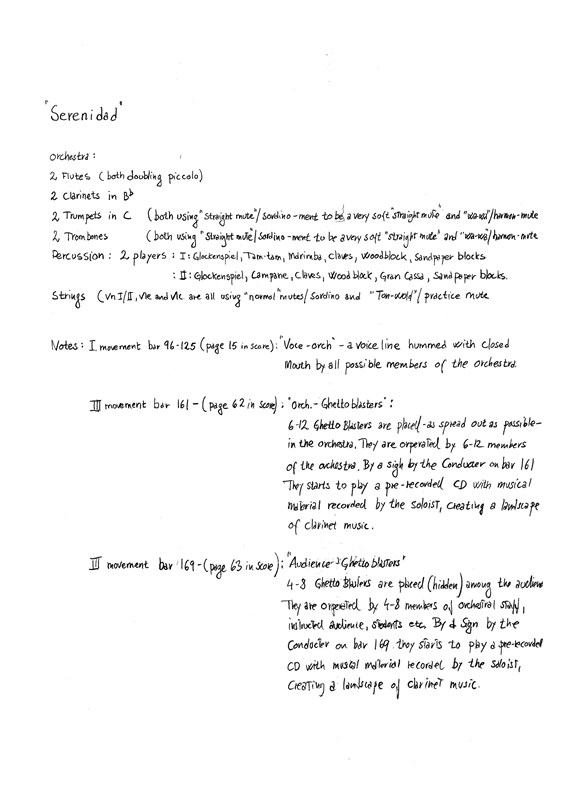 "Serenidad"
Orchestra:
2 Flutes (both doubling piccolo)
2 Clarinets in Bb
2 Trumpets in C (both using "straight mute"/sordino-ment to be a very soft "straight mute" and "wa-wa"/harmon-mute
2 Trombones (both using "straight mute"/sordino-ment to be a very soft "straight mute" and "wa-wa"/harmon-mute
Percussion: 2 players: I: Glockenspiel, Tam-tam, Marimba, Claves, Woodblock, Sandpaper blocks
: II: Glockenspiel, Campane, Claves, Wood block, Gran Cassa, Sandpaper blocks.
Strings (Vn I/II, Vle and Vlc are all using "normal" mutes/Sordino and "Ton-wolf"/practice mute
Notes: I movement bar 96-125 (page 15 in score): "Voce-orch" - a voice line hummed with closed
Mouth by all possible members of the orchestra.
III movement bar 161-(page 62 in score): "Orch.-Ghettoblasters":
6-12 Ghetto Blasters are placed-as spread out as possible-
in the orchestra. They are orperated by 6-12 members
of the orchestra. By a sign by the Conducter on bar 161
They starts to play a pre-recorded CD with musical
material recorded by the soloist, creating a landscape
of clarinet music.
III movement bar 169-(page 63 in score): "Audience Ghettoblasters"
4-8 Ghetto Blasters are placed (hidden) among the audience
They are orperated by 4-8 members of orchestral staff,
instructed audience, students etc. By a Sign by the
Conducter on bar 169 they starts to play a pre-recorded
CD with musical material recorded by the soloist,
Creating a landscape of clarinet music.